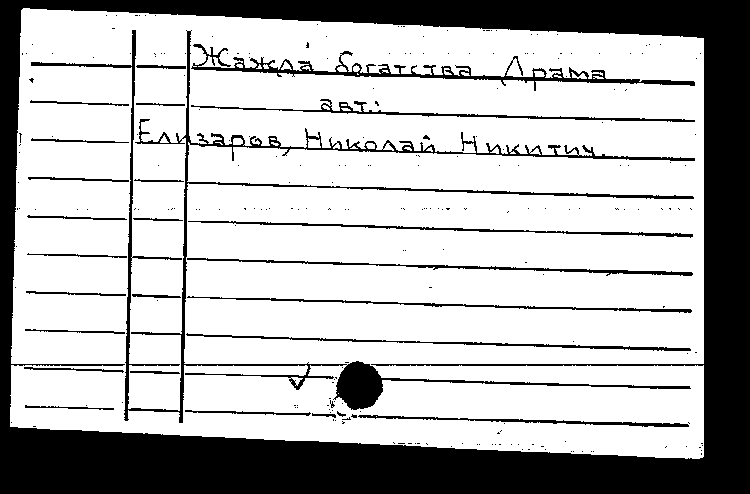 Жажда богатства. Драма
авт.:
Елизаров, Николай Никитич.